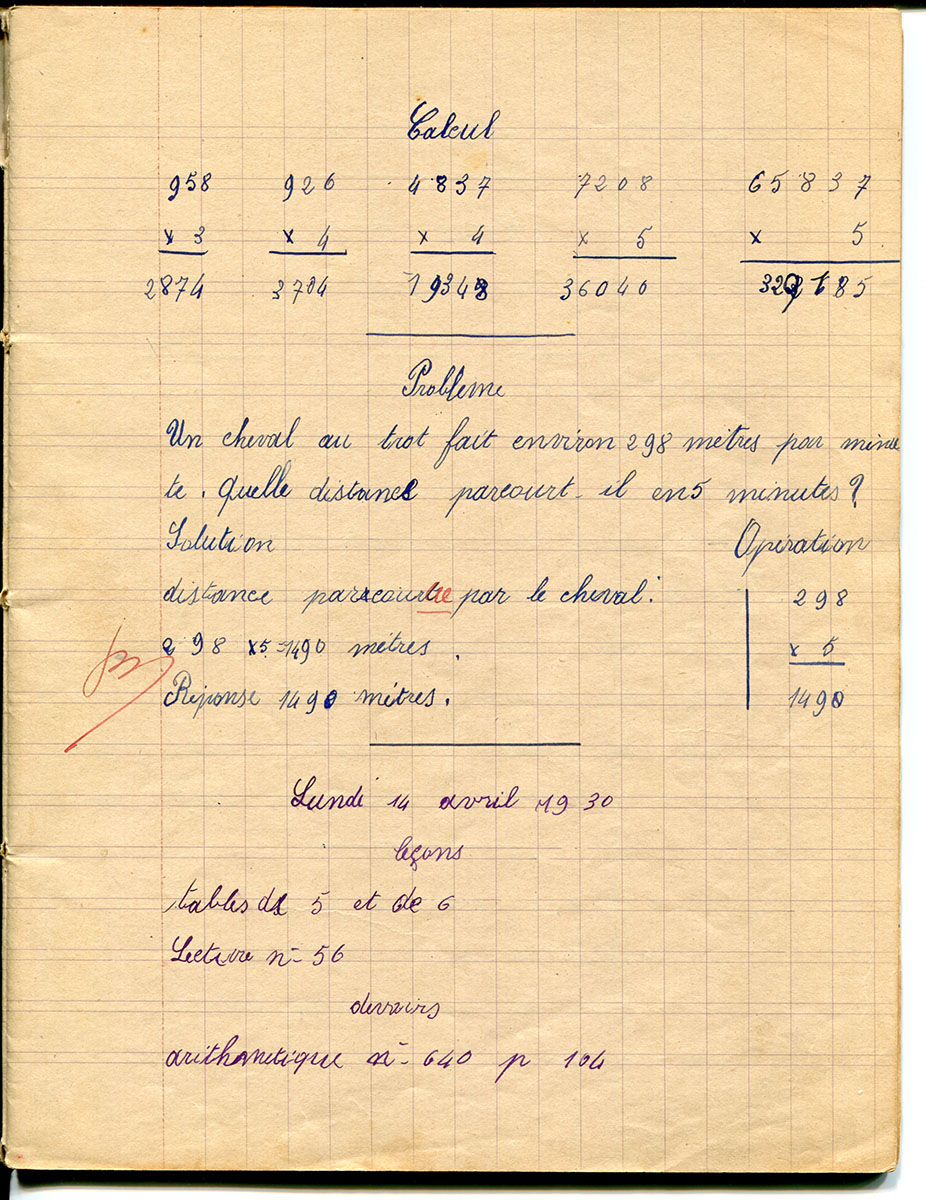 Calcul
958 926 4837 7208 65837
x 3 x 4 x 4 x 5 x 5
2874 3704 19348 36040 329185
Problème
Un cheval au trot fait environ 298 mètres par minu
te. Quelle distance parcourt-il en 5 minutes?
Solution Opération
distance parcourue par le cheval: 298
298 x5=1490 mètres. x 5
Réponse 1490 mètres. 1490
Lundi 14 avril 1930
leçons
tables de 5 et de 6
Lecture n- 56
devoirs
arithmétique n- 640 p 104